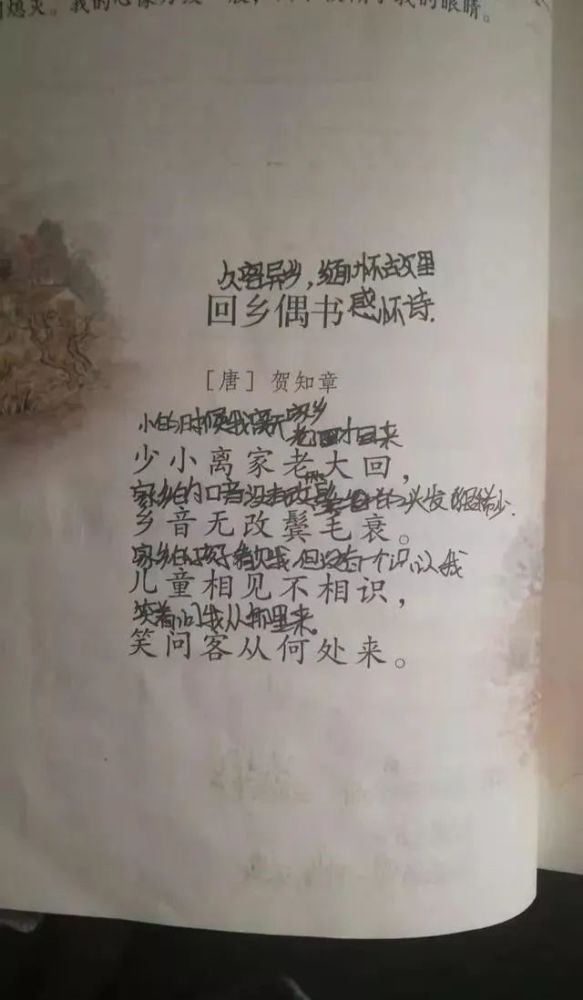 熄灭。我的心像刀绞一般，
我的眼睛。
久客异乡，缅怀故里
回乡偶书 感怀诗.
［唐］贺知章
小的时候我离开家乡 老了才回来
少小离家老大回，
家乡的口音没有改 头发 稀少.
乡音无改鬓毛衰。
家乡的孩子看见我，但没有一个认识我
儿童相见不相识，
笑着问我从哪里来。
笑问客从何处来。